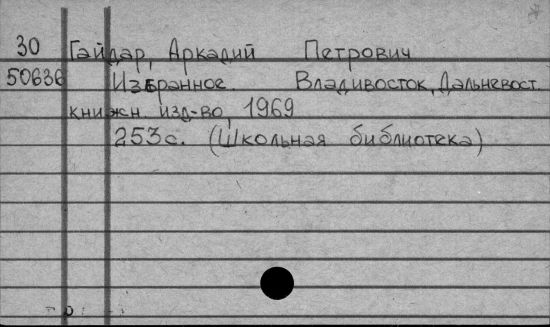 30 Гайдар, Аркадий Петрович
50636 Избранное. Владивосток, Дальневост.
книжн. изд-во, 1969
253с. (Школьная библиотека)